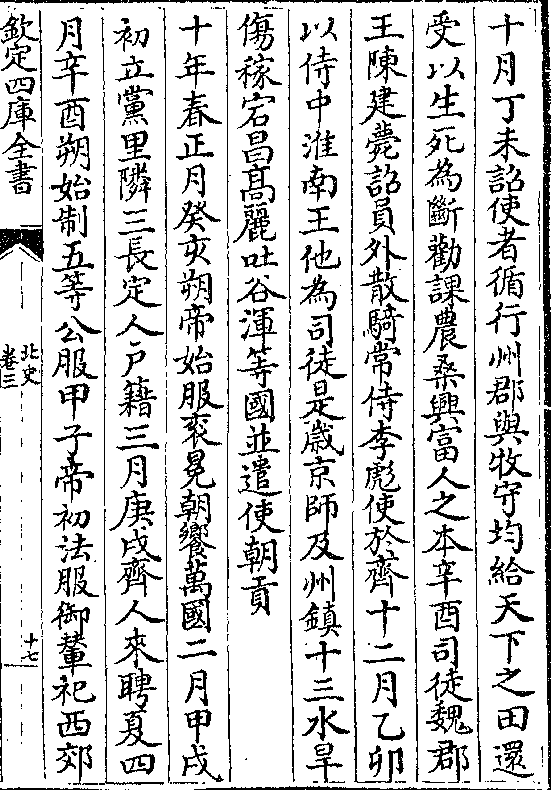 十月丁未詔使者循行州郡與牧守均給天下之田還
受以生死為斷勸課農桑興富人之本辛酉司徒魏郡
王陳建薨詔員外散騎常侍李彪使於齊十二月乙卯
以侍中淮南王他為司徒是嵗京師及州鎮十三水旱
傷稼宕昌髙麗吐谷渾等國並遣使朝貢
十年春正月癸亥朔帝始服衮冕朝饗萬國二月甲戌
初立黨里隣三長定人户籍三月庚戌齊人來聘夏四
月辛酉朔始制五等公服甲子帝初法服御輦祀西郊
欽定四庫全書
北史
卷三
十七